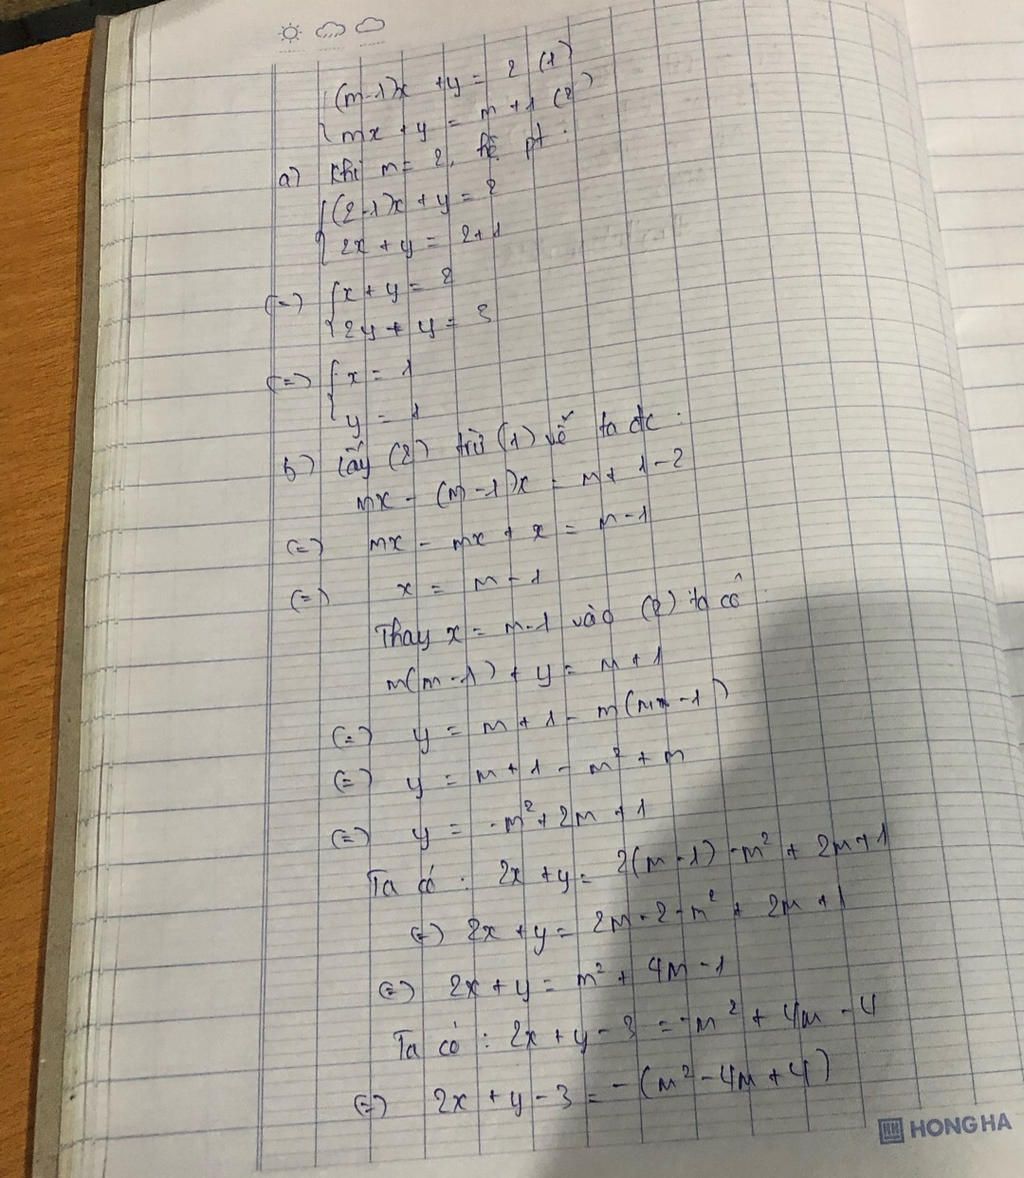 (m-1)x + y = 2 (1)
mx + y = m + 1 (2)
a) Khi m = 2, hệ pt :
(2-1)x + y = 2
2x + y = 2+1
(=) x + y = 2
2y + y = 3
(=) x = 1
y = 1
b) Lấy (2) trừ (1) vế ta đc :
mx - (m-1)x = m + 1 - 2
(=) mx - mx + x = m - 1
(=) x = m - 1
Thay x = m-1 vào (2) ta có
m(m-1) + y = m + 1
(=) y = m + 1 - m(m-1)
(=) y = m + 1 - m² + m
(=) y = -m² + 2m + 1
Ta có : 2x + y = 2(m-1) -m² + 2m + 1
(=) 2x + y = 2m - 2 - m² + 2m + 1
(=) 2x + y = m² + 4m - 1
Ta có : 2x + y - 3 = -m² + 4m - 4
(=) 2x + y - 3 = -(m² - 4m + 4)
HONG HA